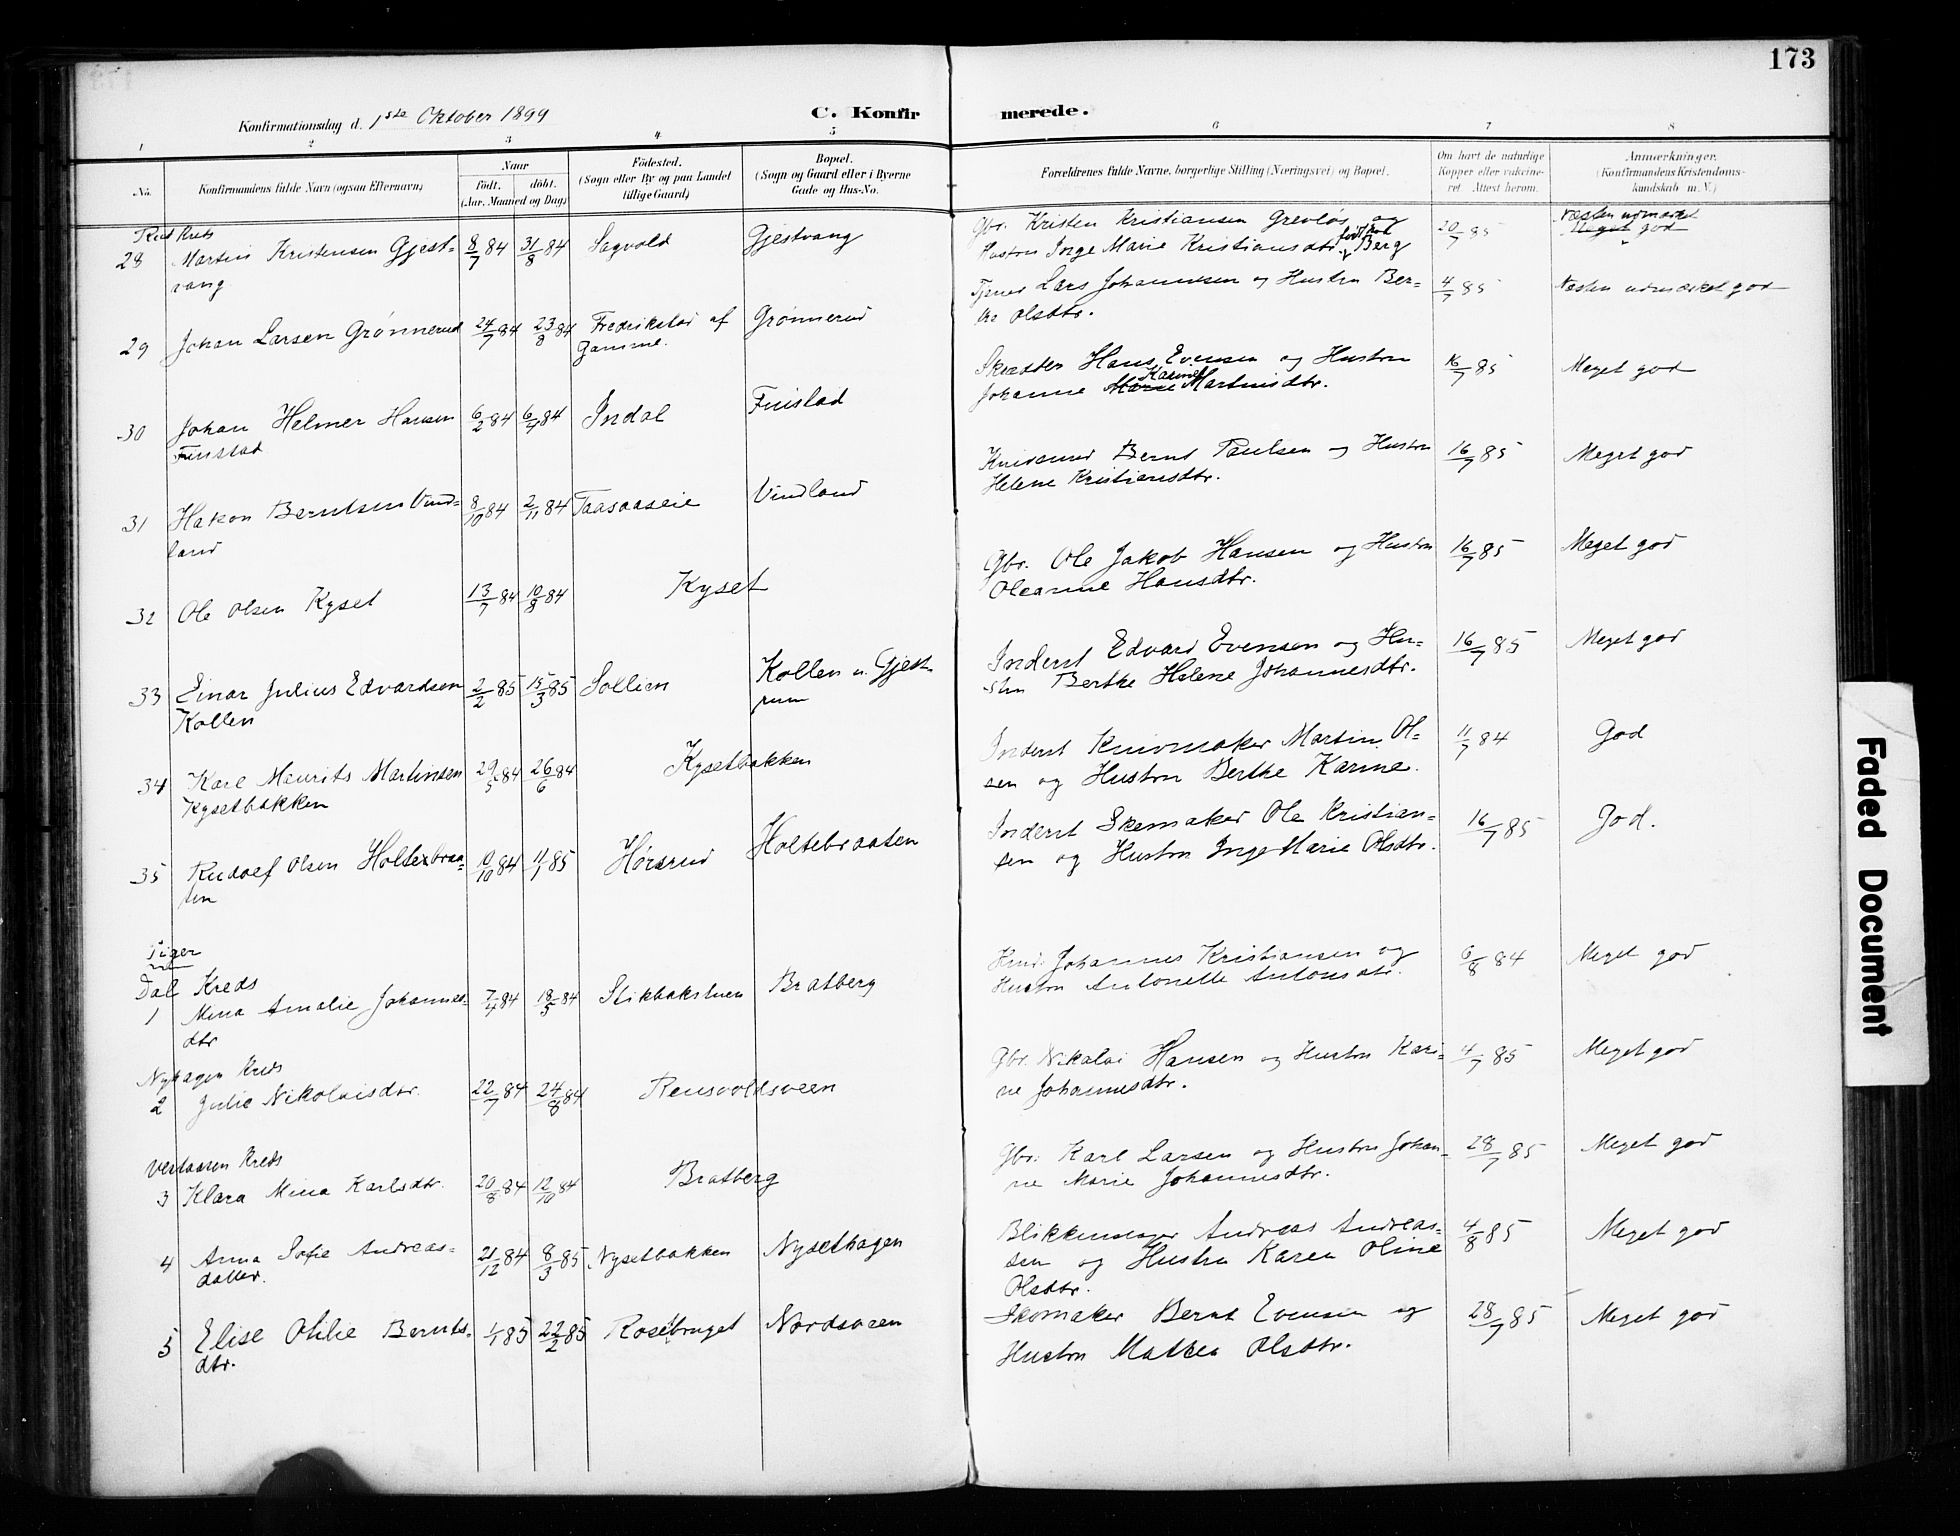 173
Konfirmationsdag d. 1ste Oktober 1899
C. Konfirmerede.
1 2 3 4 5 6 7 8
No. Konfirmandens fulde Navn (ogsaa Efternavn) Naar födt. döbt. (Aar, Maaned og Dag) Födested. (Sogn eller By og paa Landet tillige Gaard) Bopæl. (Sogn og Gaard eller i Byerne Gade og Hus-No. Forældrenes fulde Navne, borgerlige Stilling (Næringsvei) og Bopæl. Om havt de naturlige Kopper eller vakcineret. Attest herom. Anmærkninger. (Konfirmandens Kristendomskundskab m. V.)
Kreds
28 Martin Kristensen Gjest- 8/7 84 31/8 84 Sagvold Gjestvang Gbr. Kristen Kristiansen Grevløs og 20/7 85 Næsten udmærket
vang Hustru Inge Marie Kristiansdtr. født paa Berg Meget god
29 Johan Larsen Grønnerud 24/7 84 23/8 84 Fredrikstad af Grønnerud Tjener Lars Johannesen og Hustru Ber- 4/7 85 Næsten udmærket god
Gamme. the Olsdtr.
30 Johan Helmer Hansen 6/2 84 6/4 84 Indal Finstad Skrædder Hans Evensen og Hustru 16/7 85 Meget god
Finstad Johanne Marie Karine Martinsdtr.
31 Hakon Berntsen Vind- 8/10 84 2/11 84 Taasaaseie Vindland Knivsmed Bernt Paulsen og Hustru 16/7 85 Meget god
land Helene Kristiansdtr.
32 Ole Olsen Kyset 13/7 84 10/8 84 Kyset Gbr. Ole Jakob Hansen og Hustru 16/7 85 Meget god
Oleanne Hansdtr.
33 Einar Julius Edvardsen 2/2 85 15/3 85 Sollien Kollen u. Gjest- Inderst Edvard Evensen og Hu- 16/7 85 Meget god
Kollen rum stru Berthe Helene Johannesdtr.
34 Karl Maurits Martinsen 29/5 84 26/6 84 Kysetbakken Inderst Knivmaker Martin Ol- 11/7 84 God
Kysetbakken sen og Hustru Berthe Karine.
35 Rudolf Olsen Holtebraa- 10/10 84 11/1 85 Hørsrud Holtebraaten Inderst Skomaker Ole Kristian- 16/7 85 God.
ten sen og Hustru Inge Marie Olsdtr.
Piger
Dal Kreds
1 Mina Amalie Johannes- 7/4 84 18/5 84 Stikbakstuen Bratberg Johannes Kristiansen og 6/8 84 Meget god
dtr Hustru Antonette Antonsdtr.
Nyhagen Kreds
2 Julie Nikolaisdtr. 22/7 84 24/8 84 Rensvoldsveen Gbr. Nikolai Hansen og Hustru Kari- 4/7 85 Meget god
ne Johannesdtr.
Vestaasen Kreds
3 Klara Mina Karlsdtr. 20/8 84 12/10 84 Bratberg Gbr. Karl Larsen og Hustru Johan- 28/7 85 Meget god
ne Marie Johannesdtr.
4 Anna Sofie Andreas- 21/12 84 8/3 85 Nysetbakken Nysethagen Blikkenslager Andreas Andreas- 4/8 85 Meget god
datter. sen og Hustru Karen Oline
Olsdtr.
5 Elise Otilie Bernts- 1/1 85 22/2 85 Rosebruget Nordsveen Skomaker Bernt Evensen og 28/7 85 Meget god
dtr. Hustru Mathea Olsdtr.
Faded Document